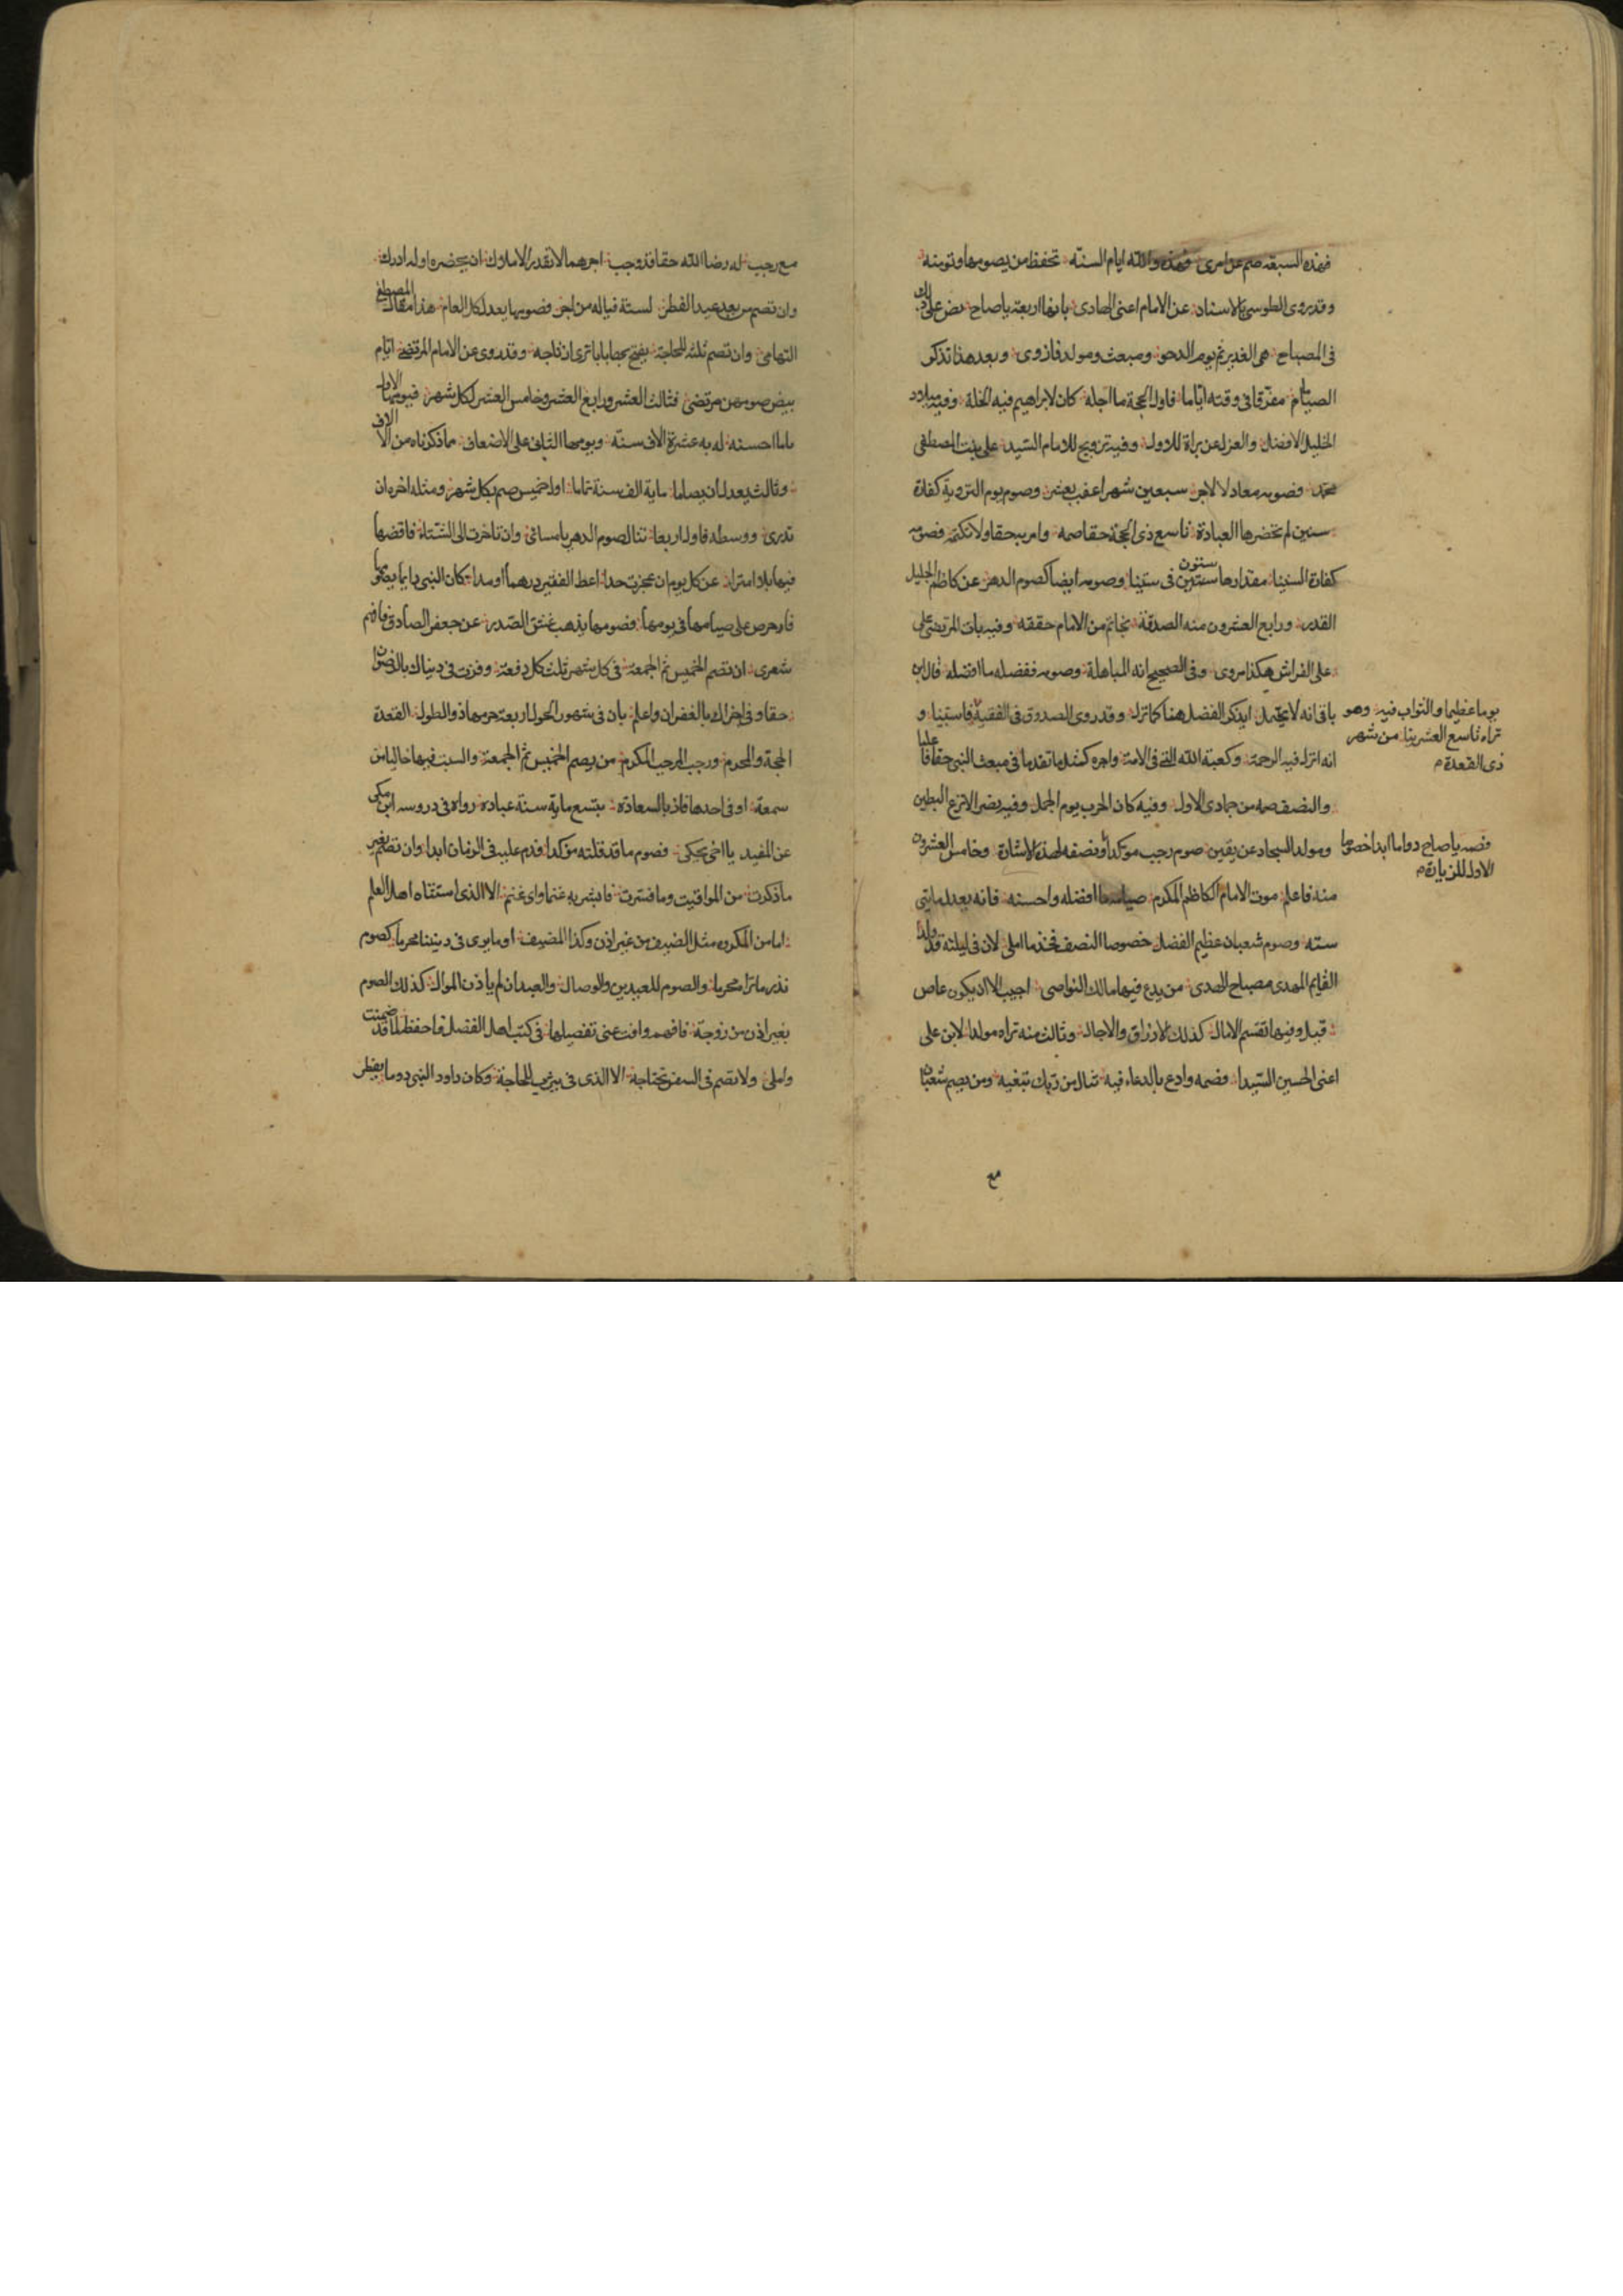 فهذه السبعة صم عن امري وهذه والله ايام السنة تحفظ من يصومها وتؤمنه
وقد روى الطوسي بالاسناد عن الامام اعني الهادي بانها اربعة يا صاح نص على ذلك
في المصباح هي الغدير ثم يوم الدحو ومبعث ومولد فاز وي وبعد هذا تذكر
الصيام مفرقا في وقته اياما فاول الحجة ما اجله كان لابراهيم فيه الخلة وفيه ميلاد
الخليل الافضل والعزل عن براة للاول وفيه تزويج للامام السيد علي بنت المصطفى
محمد وصومه معادلا لاجر سبعين شهرا عقب بعشر وصوم يوم التروية كفارة
سنين لم تحضرها العبادة تاسع ذي الحجة حقا صمه وامر به حقا ولا تكتمه فصومه
كفارة السنينا مقدارها ستون ستين في ستينا وصومه ايضا كصوم الدهر عن كاظم الجليل
القدر ورابع العشرون منه الصدقة بخاتم من الامام حققه وفيه بات المرتضى علي
على الفراش هكذا مروي وفي الصحيح انه المباهلة وصومه ففضله ما افضله قال ابن
باقي انه لا يحتمل ايذكر الفضل هنا كما نزل وقد روى الصدوق في الفقيه فاستبينا و
يوما عظيما والثواب فيه وهو
تراه تاسع العشرينا من شهر
ذي القعدة م
انه انزل فيه الرحمة وكعبة الله التي في الامة واجره كمثل ما تقدما في مبعث النبي حقا فاعلما
والنصف صمه من جمادى الاول وفيه كان الحرب يوم الجمل وفيه نصر الانزع البطين
ومولد السجاد عن يقين صوم رجب موكدا ونصفه لهذه الاشارة وخامس العشرون
فصمه يا صاح دواما ابدا خصوصا
الاول للزيارة م
منه فاعلم موت الامام الكاظم المكرم صيامها افضله واحسنه فانه يعدل مايتي
سنه وصوم شعبان عظيم الفضل خصوصا النصف فخذ ما املي لان في ليلته قد ولدا
القايم المهدي مصباح الهدى من يدع فيها مالك النواصي اجيب الا ان يكون عاص
قبل وفيها تقسيم الامال كذلك الارزاق والاجال وثالث منه تراه مولدا لابن علي
اعني الحسين السيدا فصمه وادع بالدعاء فيه تنال من ربك تبتغيه ومن يصم شعبان
مع
مع رجب له رضا الله حقا قد وجب اجرهما لا تقدر الاملاك ان يحضره او له ادراك
وان تصم من بعد عيد الفطر لستة فياله من اجر فصومها يعدل كل العام هذا مقال المصطفى
التهامي وان تصم ثلثه للحاجة بفتح بابا ترى ازتاجه وقد روى عن الامام المرتضى ايام
بيض صومهن مرتضى فثالث العشر ورابع العشر وخامس العشر لكل شهر فيومها الاول
ياما احسنه له به عشرة الاف سنة ويومها الثاني على الاضعاف مما ذكرناه من الالاف
وثالث يعدل ان يصاما ماية الف سنة تماما اول خميس صم بكل شهر ومثله اخره ان
تدري ووسطه فاول اربعا تنال صوم الدهر يا مسامي وان تاخرت الى الشتاء فاقضها
فيها بلا امتراء عن كل يوم ان عجزت حدا اعط الفقير درهما او مدا كان النبي دايما يصومها
فاحرص على صيامها في يومها فصومها يذهب غش الصدر عن جعفر الصادق فافهم
شعري ان تصم الخميس ثم الجمعة في كل شهر ثلث كل دفعة وفزت في دنياك بالرضوان
حقا وفي اخراك بالغفران واعلم بان في شهور الحول اربعة حرمها ذو الطول القعدة
الحجة والمحرم ورجب المرجب المكرم من يصم الخميس ثم الجمعة والسبت فيها خاليا من
سمعة او في احدها فاز بالسعادة بتسع ماية سنة عبادة رواه في دروسه ابن مكي
عن المفيد يا اخي يحكي فصوم ما قد قلته موكدا فدم عليه في الزمان ابدا وان تصم بغير
ما ذكرت من المواقيت وما فسرت فابشر به غنما واي غنم الا الذي استثناه اهل العلم
اما من المكروه مثل الضيف من غير اذن وكذا المضيف او ما يرى في ديننا محرما كصوم
نذر ما ترا محرما والصوم للعيدين والوصال والعبد ان لم ياذن الموال كذلك الصوم
بغير اذن من زوجة فافهم وافت عني تفصيلها في كتب اهل الفضل فاحفظ لما قد ضمنت
واملي ولا تصم في السفر تحتاجة الا الذي في يثرب للحاجة وكان داود النبي دوما يفطر